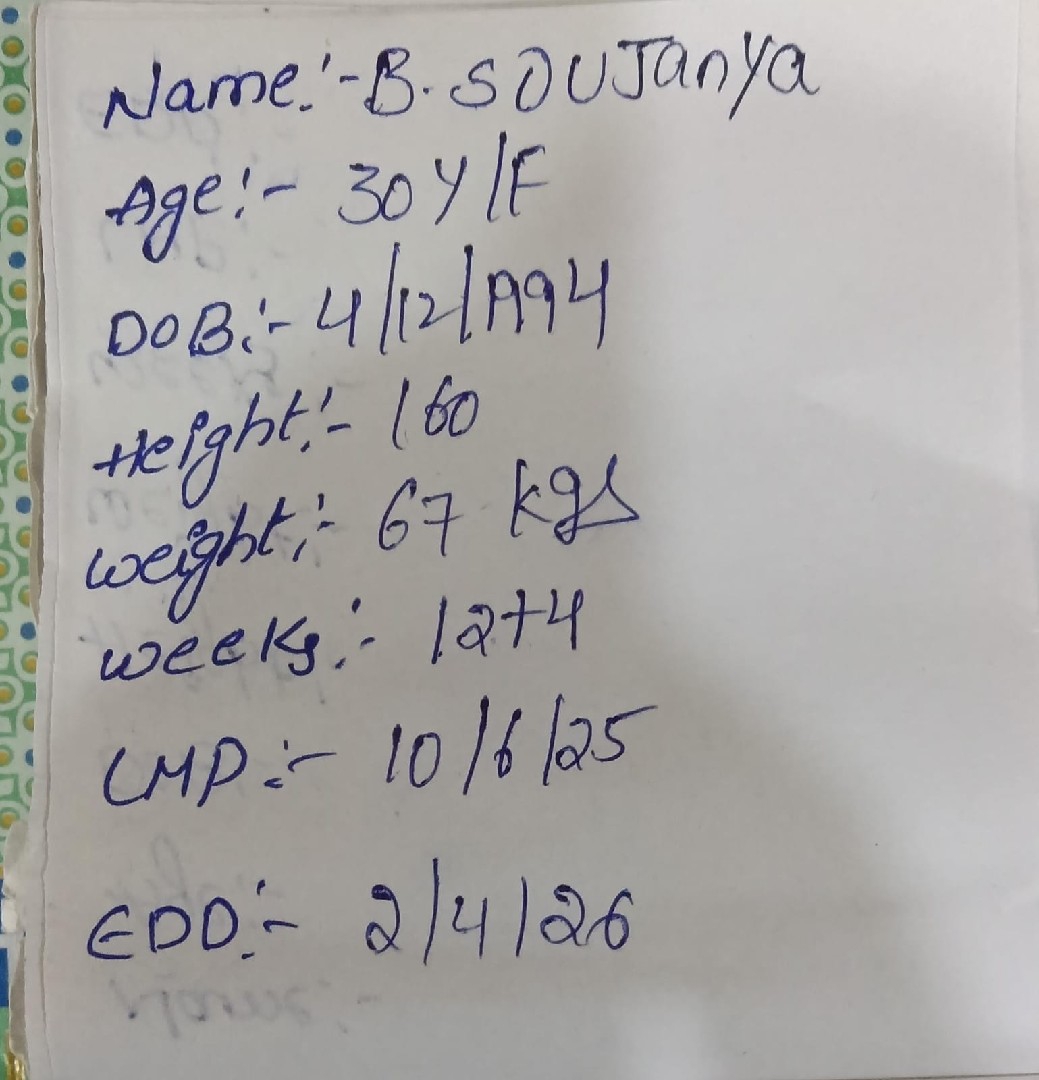 Name:- B. SOUJanya
Age:- 30Y/F
DOB:- 4/12/1994
Height:- 160
weight:- 67 kgs
weeks:- 12+4
LMP:- 10/6/25
EDD:- 2/4/26